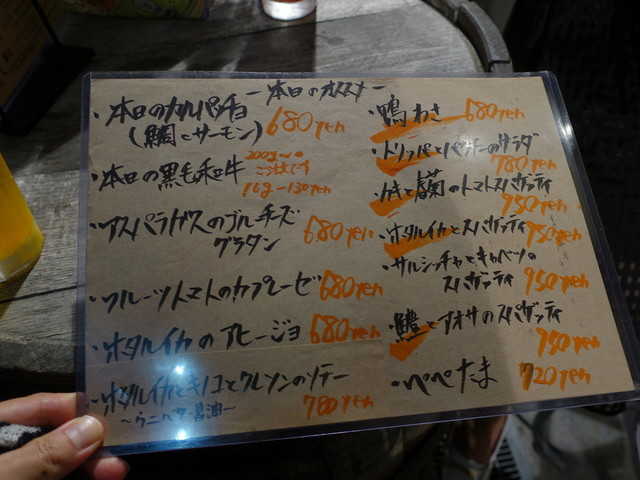 ー本日のオススメー
・本日のカルパッチョ
(鯛とサーモン) 680yen
・本日の黒毛和牛
200g〜の
ご注文です
10g-130yen
・アスパラガスのゴルゴンチーズ
グラタン 680yen
・フルーツトマトのカプレーゼ 680yen
・ホタルイカのアヒージョ 680yen
・ホタルイカとキノコとクレソンのソテー
〜ウニバター醤油〜 780yen
・鴨わさ 680yen
・トリッパとパクチーのサラダ
780yen
・カキと白菌のトマトスパゲッティ
950yen
・ホタルイカとスパゲッティ 950yen
・サルシッチャとキャベツの
スパゲッティ 950yen
・鱧とアオサのスパゲッティ
950yen
・ペペたま 720yen